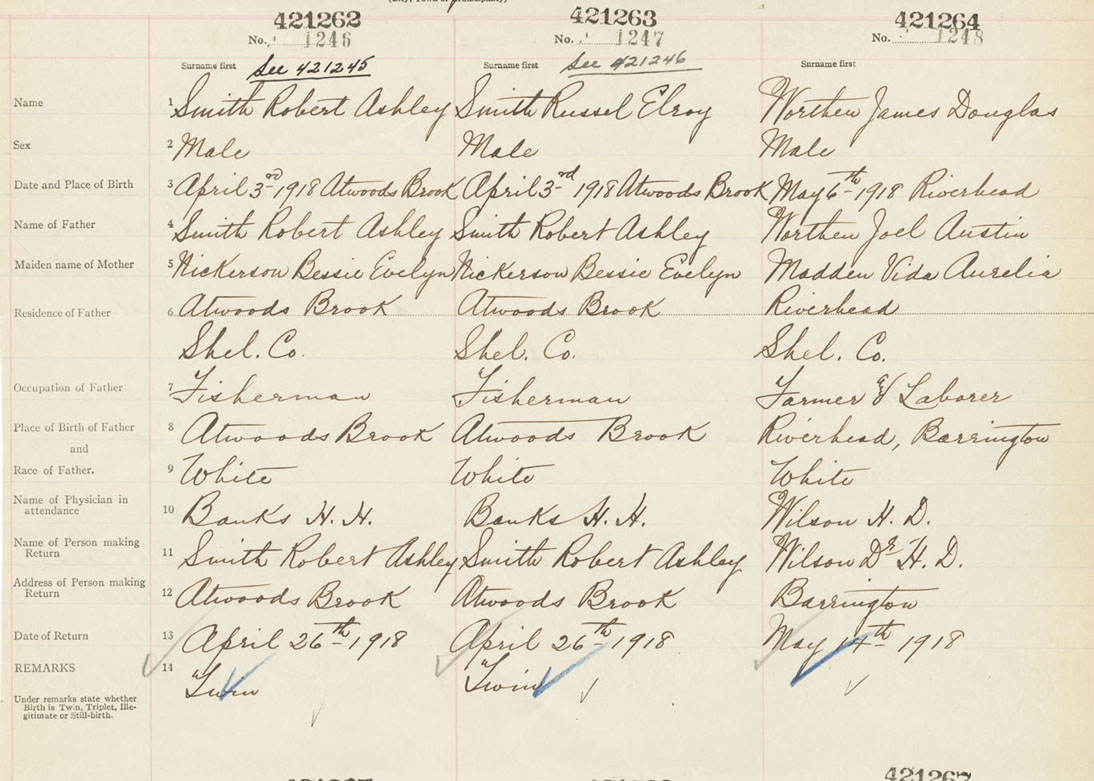 421262 421263 421264
No. 1246 No. 1247 No. 1248
Surname first See 421245 Surname first See 421246 Surname first
Name 1 Smith Robert Ashley Smith Russel Elroy Worthen James Douglas
Sex 2 Male Male Male
Date and Place of Birth 3 April 3rd 1918 Atwoods Brook April 3rd 1918 Atwoods Brook May 6th 1918 Riverhead
Name of Father 4 Smith Robert Ashley Smith Robert Ashley Worthen Joel Austin
Maiden name of Mother 5 Nickerson Bessie Evelyn Nickerson Bessie Evelyn Madden Vida Aurelia
Residence of Father 6 Atwoods Brook Atwoods Brook Riverhead
Shel. Co. Shel. Co. Shel. Co.
Occupation of Father 7 Fisherman Fisherman Farmer & Laborer
Place of Birth of Father 8 Atwoods Brook Atwoods Brook Riverhead, Barrington
and
Race of Father. 9 White White White
Name of Physician in
attendance 10 Banks H. H. Banks H. H. Wilson H. D.
Name of Person making
Return 11 Smith Robert Ashley Smith Robert Ashley Wilson Dr H. D.
Address of Person making
Return 12 Atwoods Brook Atwoods Brook Barrington
Date of Return 13 April 26th 1918 April 26th 1918 May 14th 1918
REMARKS 14 "Twin "Twin
Under remarks state whether
Birth is Twin, Triplet, Ille-
gitimate or Still-birth.
421267